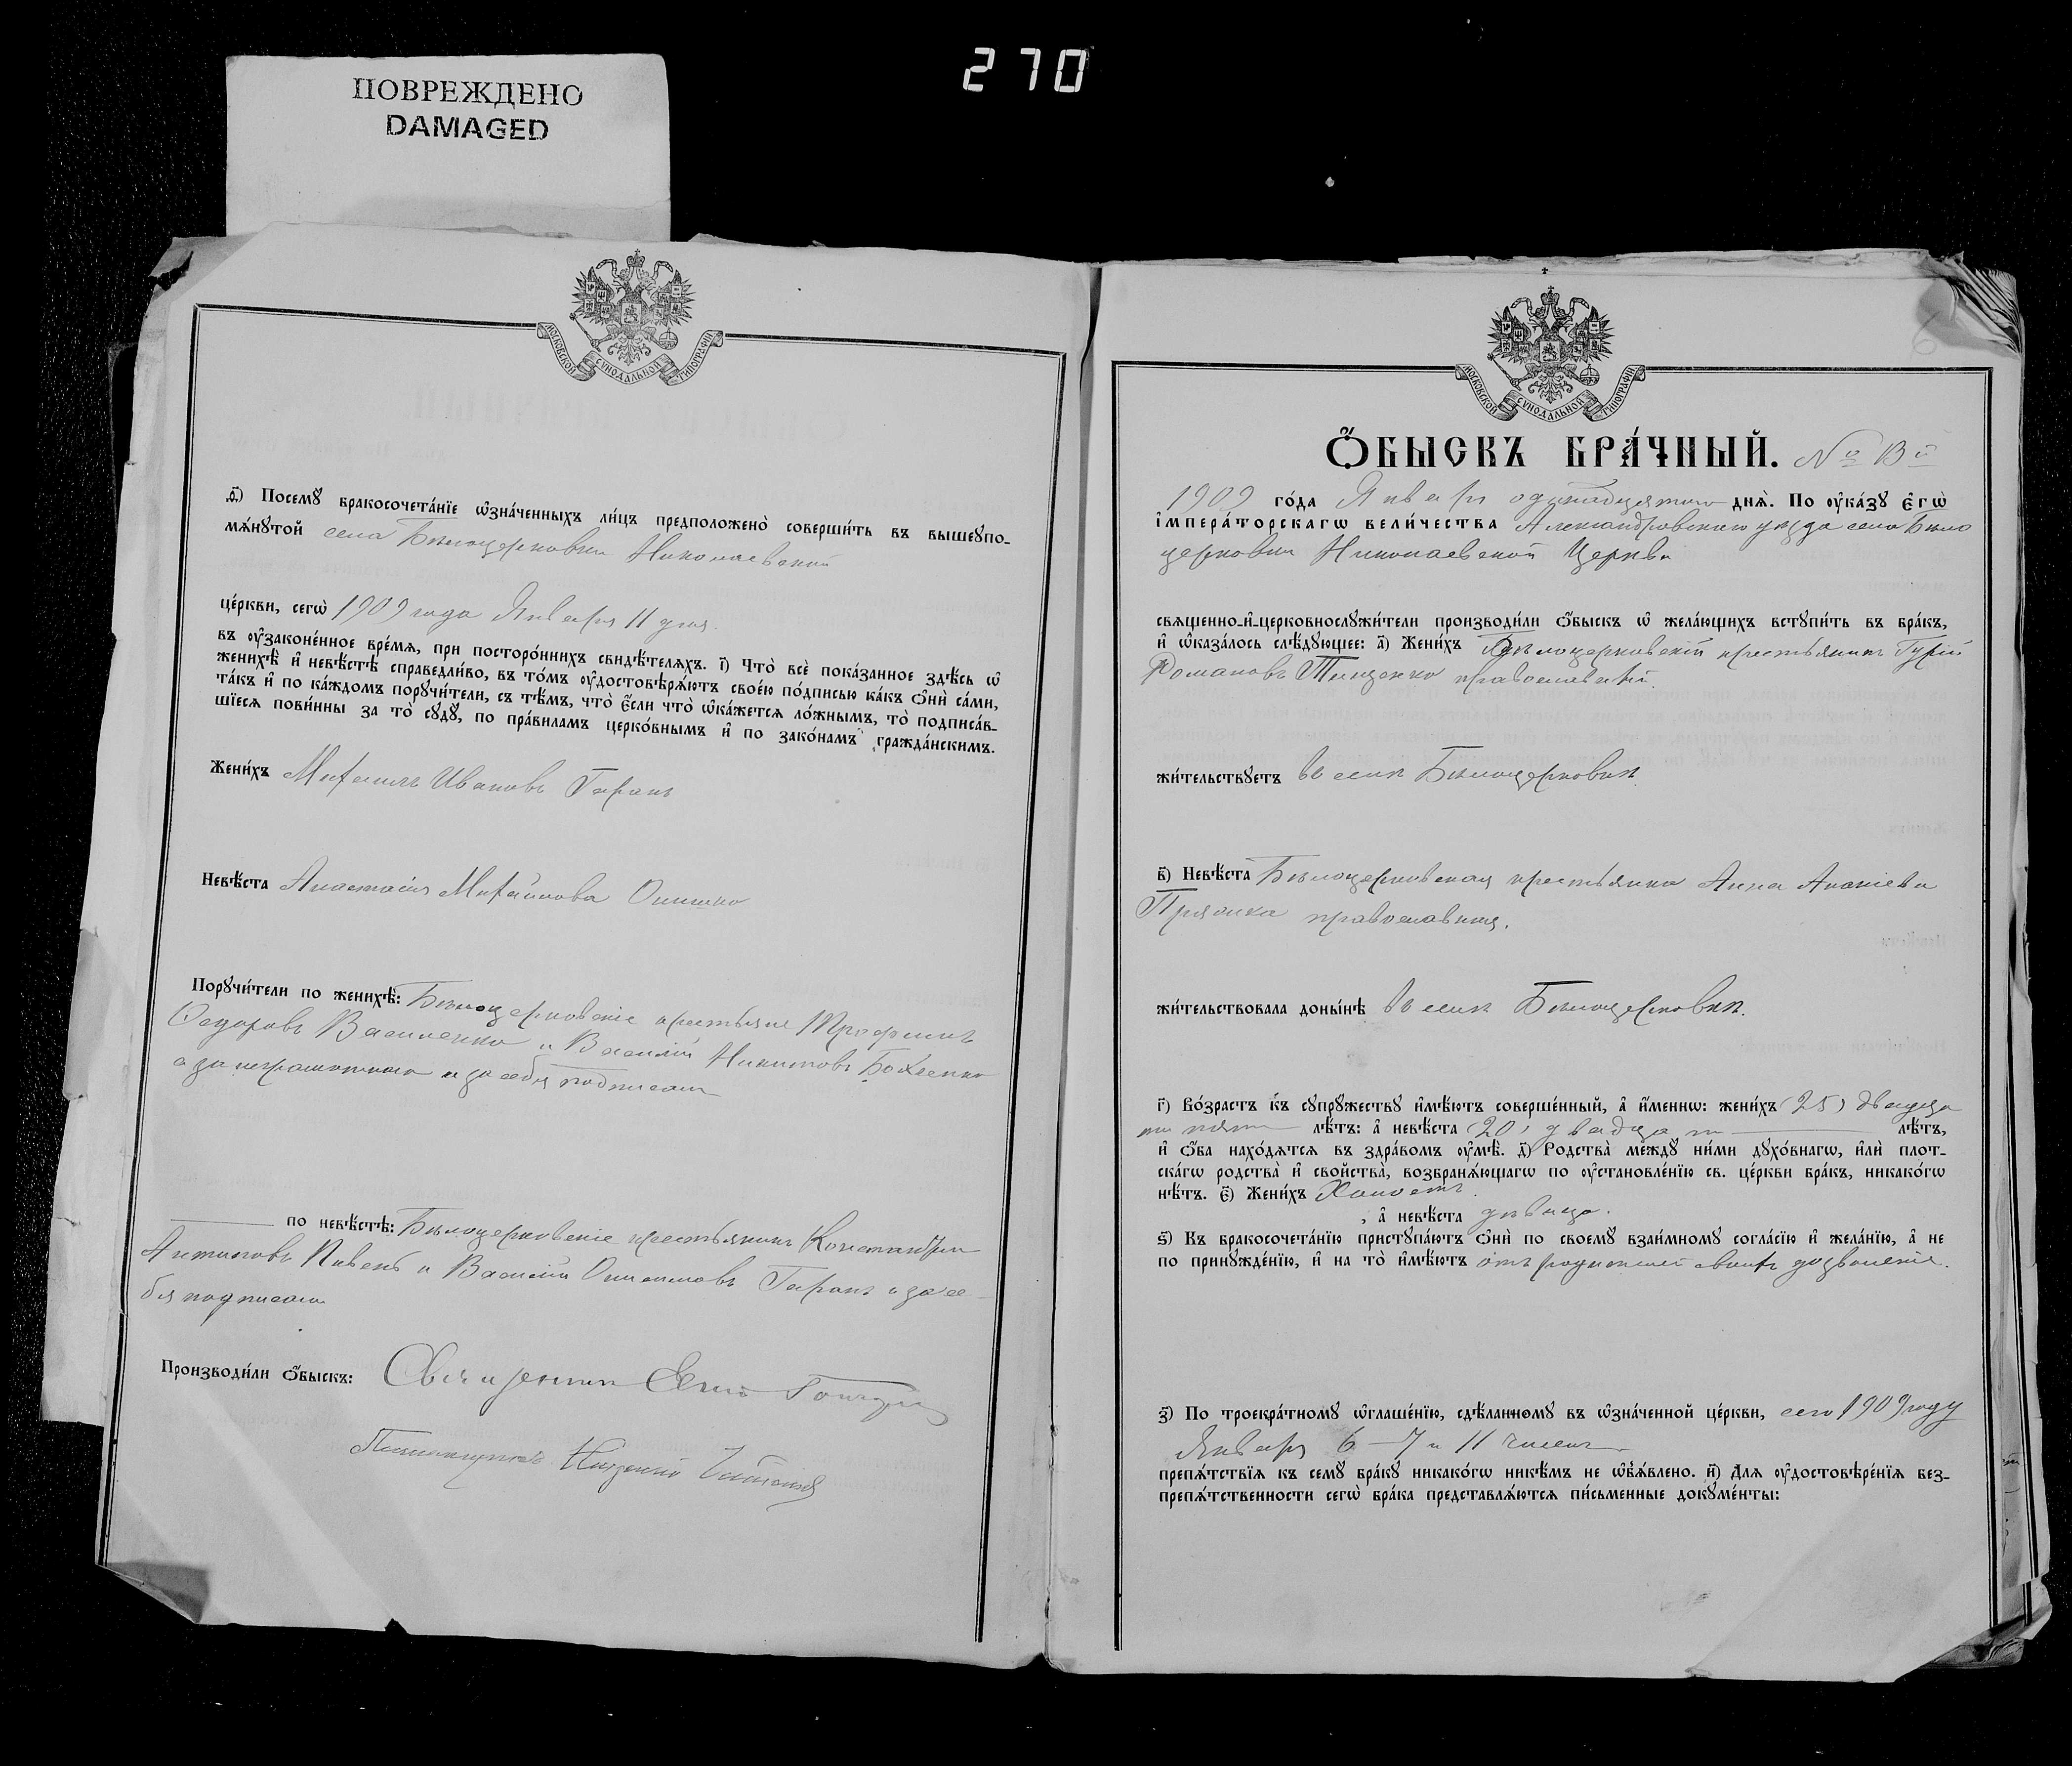 270
ПОВРЕЖДЕНО
DAMAGED
МОСКОВСКОЙ СѴНОДАЛЬНОЙ ТИПОГРАФІИ
ѳ҃) Посемꙋ бракосочета́нїе ѡ҆зна́ченныхъ ли́цъ предположено̀ соверши́ть въ вышеꙋпо-
мѧ́нꙋтой села Бѣлоцерковки Николаевской
це́ркви, сегѡ̀ 1909 года Января 11 дня
въ ᲂу҆законе́нное вре́мѧ, при посторо́ннихъ свидѣ́телѧхъ. і҃) Что̀ всѐ пока́занное здѣ́сь ѡ҆
женихѣ̀ и҆ невѣ́стѣ справедли́во, въ то́мъ ᲂу҆достовѣрѧ́ютъ свое́ю по́дписью ка́къ ѻ҆нѝ са́ми,
та́къ и҆ по ка́ждомъ порꙋчи́тели, съ тѣ́мъ, что̀ є҆́сли что̀ ѡ҆ка́жетсѧ ло́жнымъ, то̀ подписа́в-
шїесѧ пови́нны за то̀ сꙋдꙋ̀, по пра́виламъ церко́внымъ и҆ по зако́намъ гражда́нскимъ.
Жени́хъ Михаилъ Ивановъ Таранъ
Невѣ́ста Анастасія Михайлова Онишко
Порꙋчи́тели по женихѣ̀: Бѣлоцерковскіе крестьяне Трофимъ
Федоровъ Василенко и Василій Никитовъ Боженко
а за неграмотного и за себя подписалъ
по невѣ́стѣ: Бѣлоцерковскіе крестьянинъ Константинъ
Антиповъ Пивень и Василій Таранъ а за се-
бя подписали
Производи́ли ѻ҆́быскъ: Священникъ
МОСКОВСКОЙ СѴНОДАЛЬНОЙ ТИПОГРАФІИ
6
Ѻ҆́БЫСКЪ БРА́ЧНЫЙ. № Вй
1909 го́да Января одинадцятого днѧ̀. По ᲂу҆ка́зꙋ Є҆гѡ̀
І҆мпера́торскагѡ Вели́чества Александровскаго уѣзда села Бѣло
церковки Николаевской Церкви
свѧщенно-и҆-церковнослꙋжи́тели производи́ли ѻ҆́быскъ ѡ҆ жела́ющихъ встꙋпи́ть въ бра́къ,
и҆ ѡ҆каза́лось слѣ́дꙋющее: а҃) Жени́хъ Бѣлоцерковскій крестьянинъ Гурій
Романовъ Тищенко православный.
жи́тельствꙋетъ въ селѣ Бѣлоцерковкѣ.
в҃) Невѣ́ста Бѣлоцерковская крестьянка Анна Ананіева
православная.
жи́тельствовала доны́нѣ въ селѣ Бѣлоцерковкѣ.
г҃) Во́зрастъ къ сꙋпрꙋ́жествꙋ и҆мѣ́ютъ соверше́нный, а҆ и҆́меннѡ: жени́хъ (25) двадца
ти пяти лѣ́тъ: а҆ невѣ́ста (20) двадцати лѣ́тъ,
и҆ ѻ҆́ба нахо́дѧтсѧ въ здра́вомъ ᲂу҆мѣ̀. д҃) Родства̀ междꙋ̀ ни́ми дꙋхо́внагѡ, и҆лѝ плот-
ска́гѡ родства̀ и҆ свойства̀, возбранѧ́ющагѡ по ᲂу҆становле́нїю св. це́ркви бра́къ, никако́гѡ
нѣ́тъ. є҃) Жени́хъ Холостъ.
, а҆ невѣ́ста дѣвица.
ѕ҃) Къ бракосочета́нїю пристꙋпа́ютъ ѻ҆нѝ по своемꙋ̀ взаи́мномꙋ согла́сїю и҆ жела́нїю, а҆ не
по принꙋжде́нїю, и҆ на то̀ и҆мѣ́ютъ отъ родителей своихъ дозволеніе.
з҃) По троекра́тномꙋ ѡ҆глаше́нїю, сдѣ́ланномꙋ въ ѡ҆зна́ченной це́ркви, сего 1909 году
Января 6 – 7 и 11 чиселъ
препѧ́тствїѧ къ семꙋ̀ бра́кꙋ никако́гѡ никѣ́мъ не ѡ҆б̾ѧ́влено. и҃) Длѧ ᲂу҆достовѣре́нїѧ без-
препѧ́тственности сегѡ̀ бра́ка представлѧ́ютсѧ пи́сьменные докꙋме́нты: